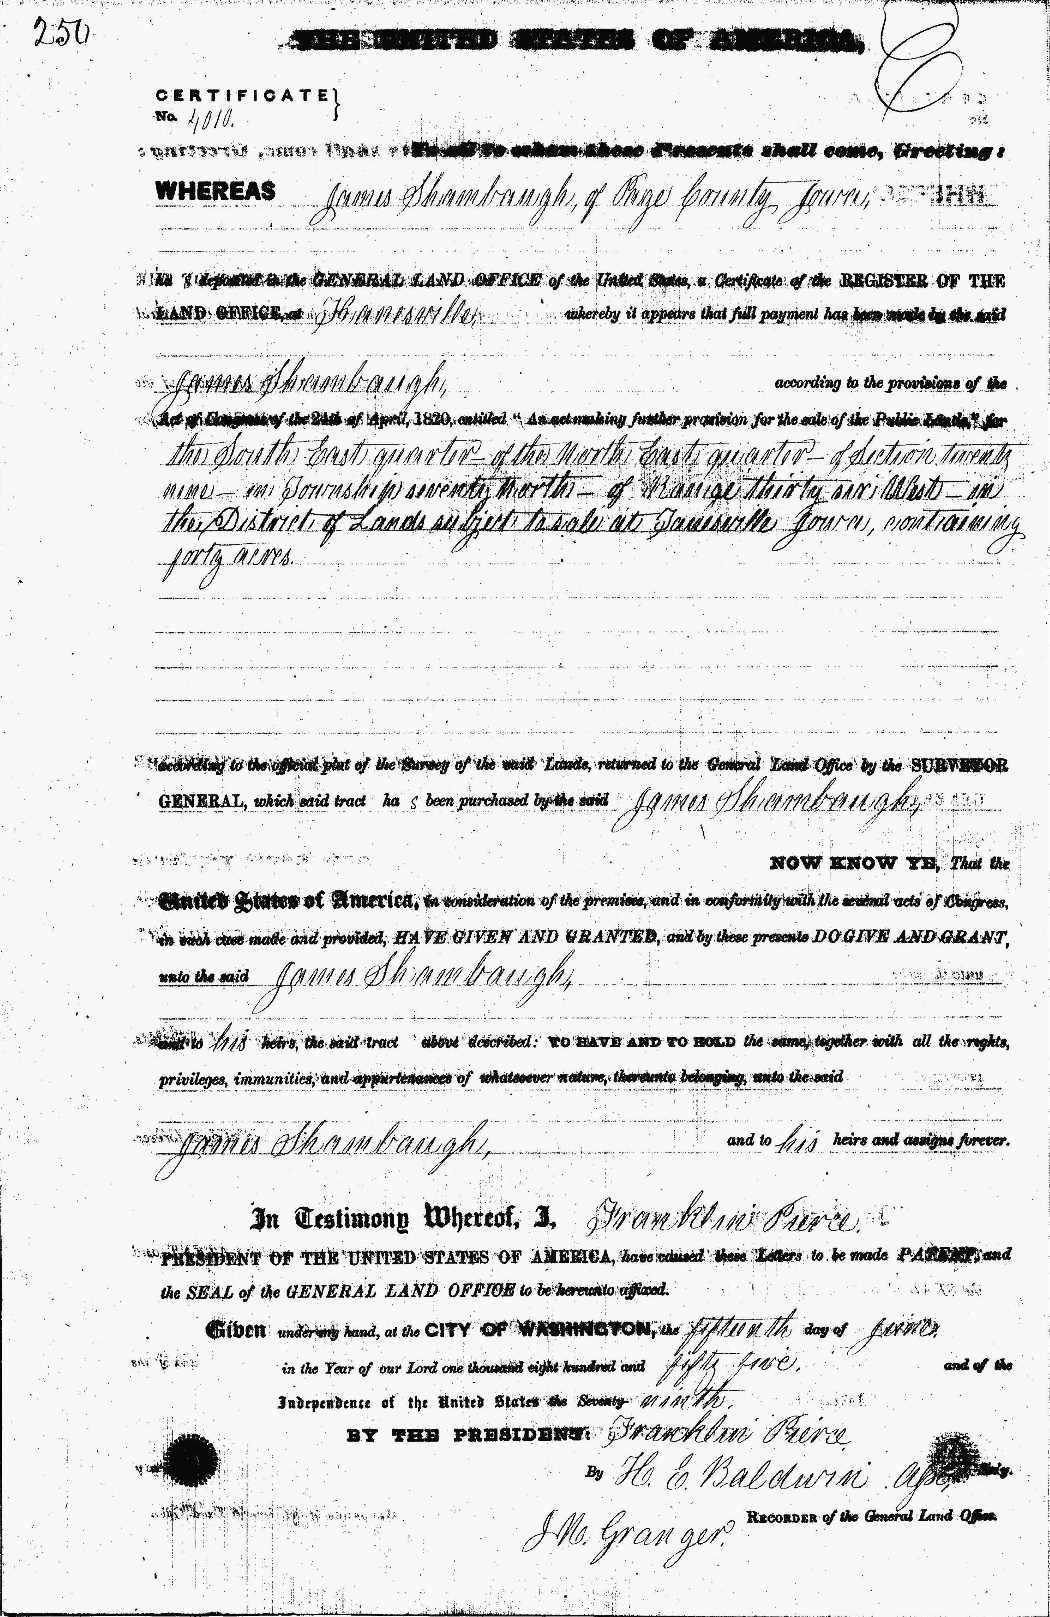 250
THE UNITED STATES OF AMERICA,
CERTIFICATE
No. 4010.
To all to whom these Presents shall come, Greeting:
WHEREAS James Shambaugh, of Page County Iowa,
ha s deposited in the GENERAL LAND OFFICE of the United States, a Certificate of the REGISTER OF THE
LAND OFFICE, at whereby it appears that full payment has been made by the said
James Shambaugh, according to the provisions of the
Act of Congress of the 24th of April, 1820, entitled "An act making further provision for the sale of the Public Lands," for
the South East quarter of the North East quarter of Section twenty
nine in Township seventy North of Range thirty six West in
the District of Lands subject to sale at Janesville Iowa, containing
forty acres.
according to the official plat of the Survey of the said Lands, returned to the General Land Office by the SURVEYOR
GENERAL, which said tract ha s been purchased by the said James Shambaugh,
NOW KNOW YE, That the
United States of America, in consideration of the premises, and in conformity with the several acts of Congress,
in such case made and provided, HAVE GIVEN AND GRANTED, and by these presents DO GIVE AND GRANT,
unto the said James Shambaugh,
and to his heirs, the said tract above described: TO HAVE AND TO HOLD the same, together with all the rights,
privileges, immunities, and appurtenances of whatsoever nature, thereunto belonging, unto the said
James Shambaugh, and to his heirs and assigns forever.
In Testimony Whereof, I, Franklin Pierce
PRESIDENT OF THE UNITED STATES OF AMERICA, have caused these Letters to be made PATENT, and
the SEAL of the GENERAL LAND OFFICE to be hereunto affixed.
Given under my hand, at the CITY OF WASHINGTON, the fifteenth day of June
in the Year of our Lord one thousand eight hundred and fifty five. and of the
Independence of the United States the Seventy ninth.
BY THE PRESIDENT: Franklin Pierce
By H. E. Baldwin Asst. Sec'y.
J. N. Granger. RECORDER of the General Land Office.